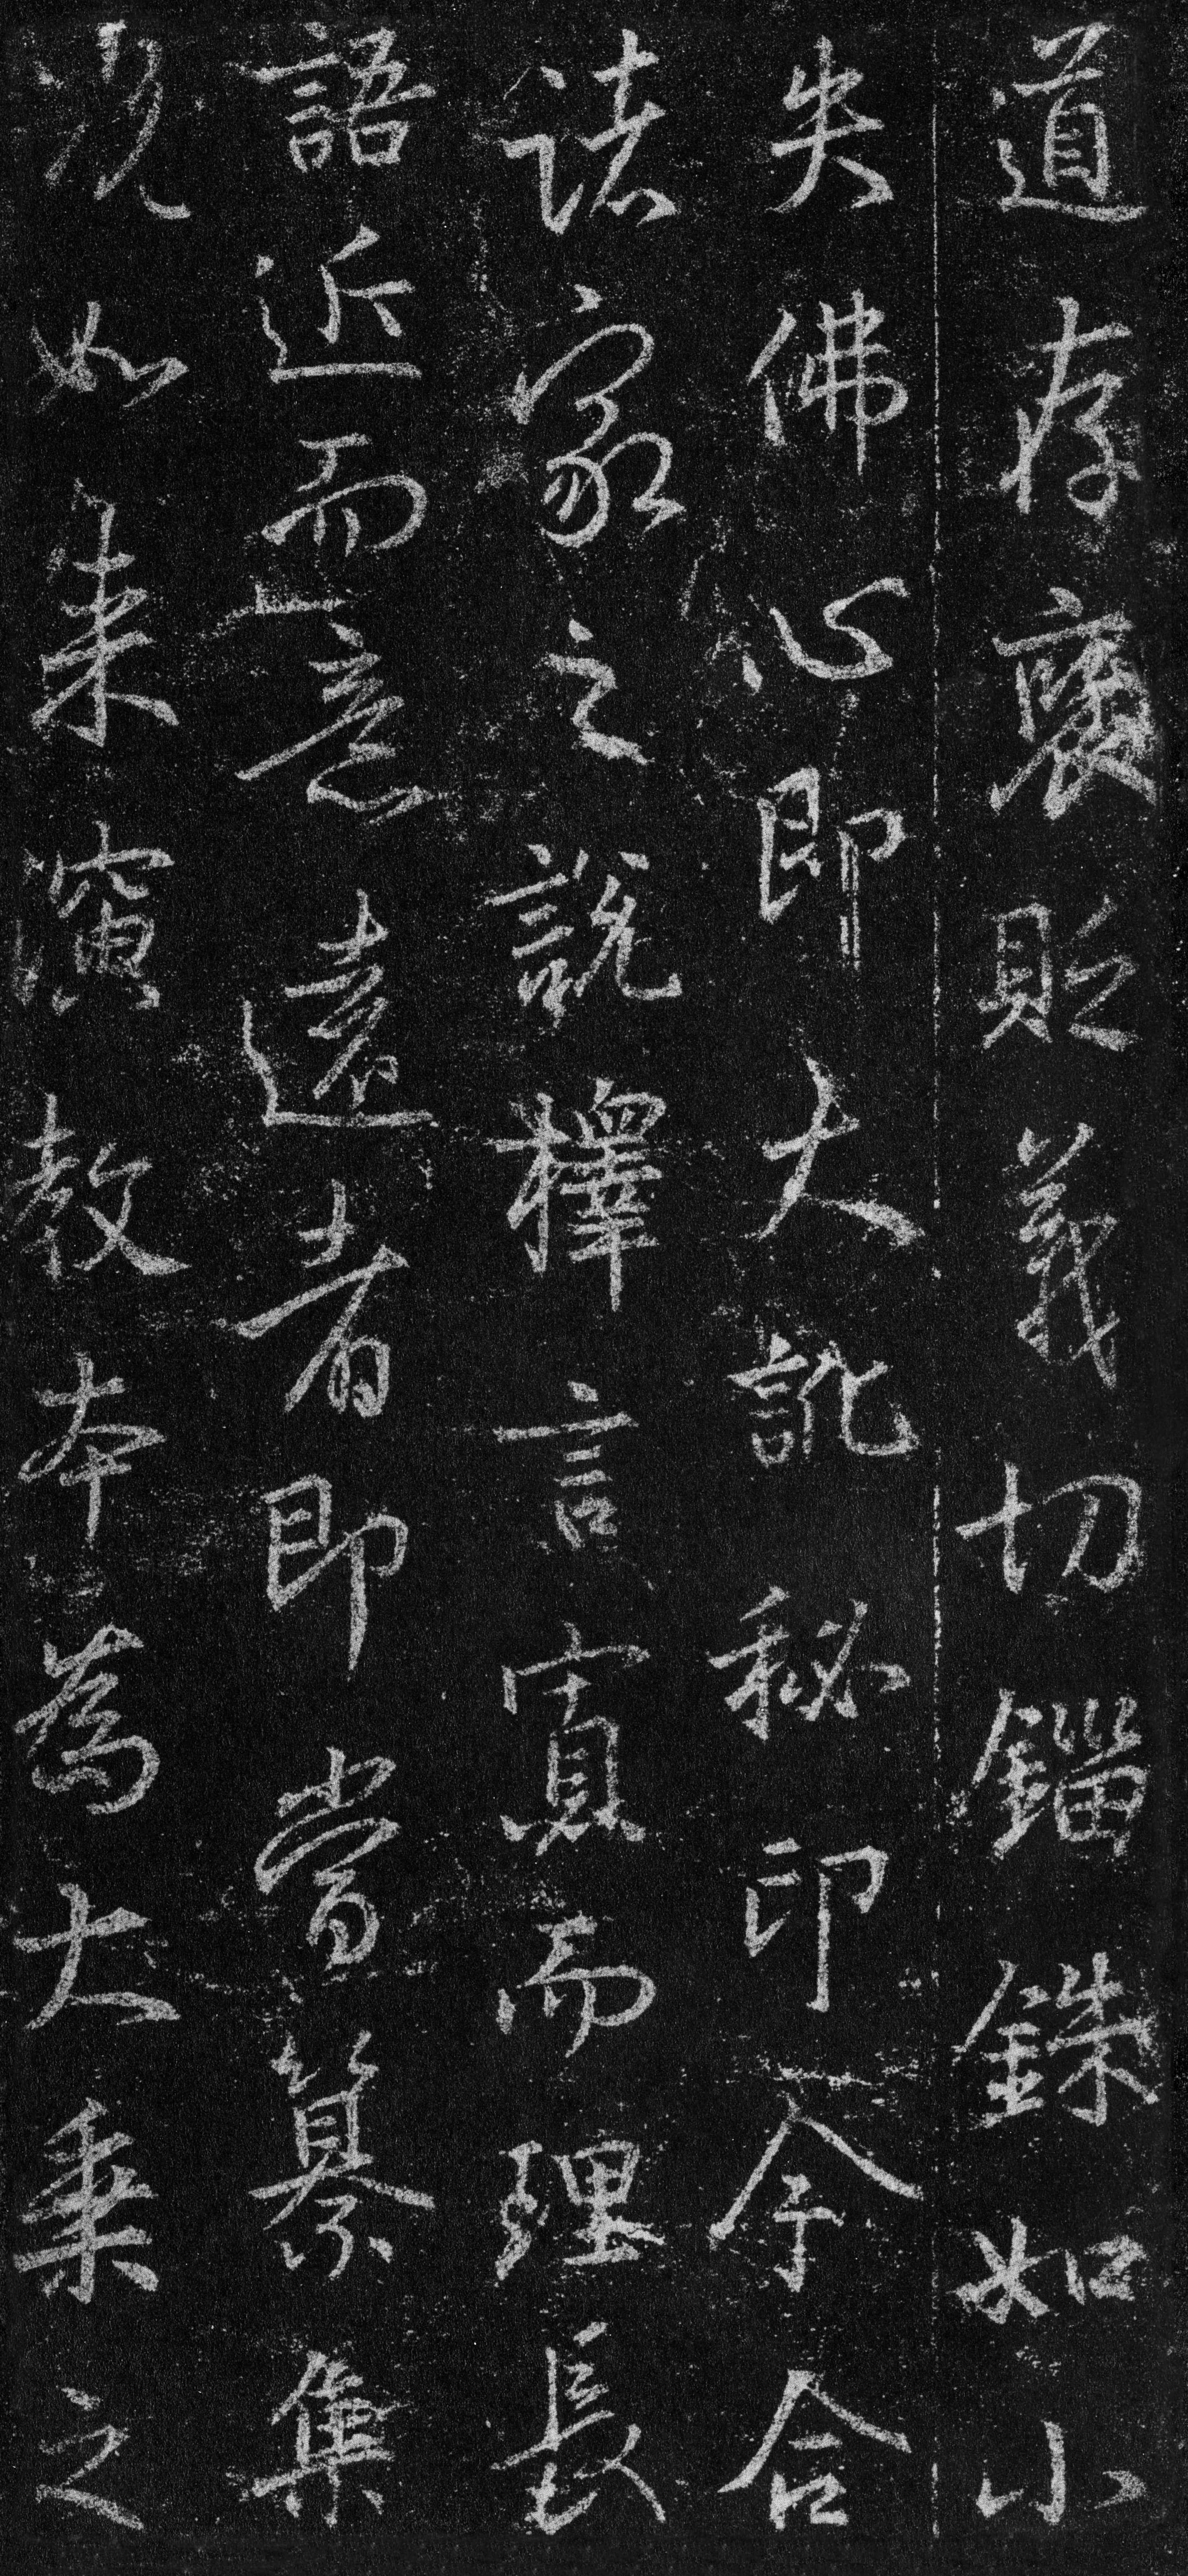 道存褒貶義切錙銖如小
失佛心即大訛秘印今合
諸家之說擇言寡而理長
語近而意遠者即當纂集
況如来演教本為大乗之